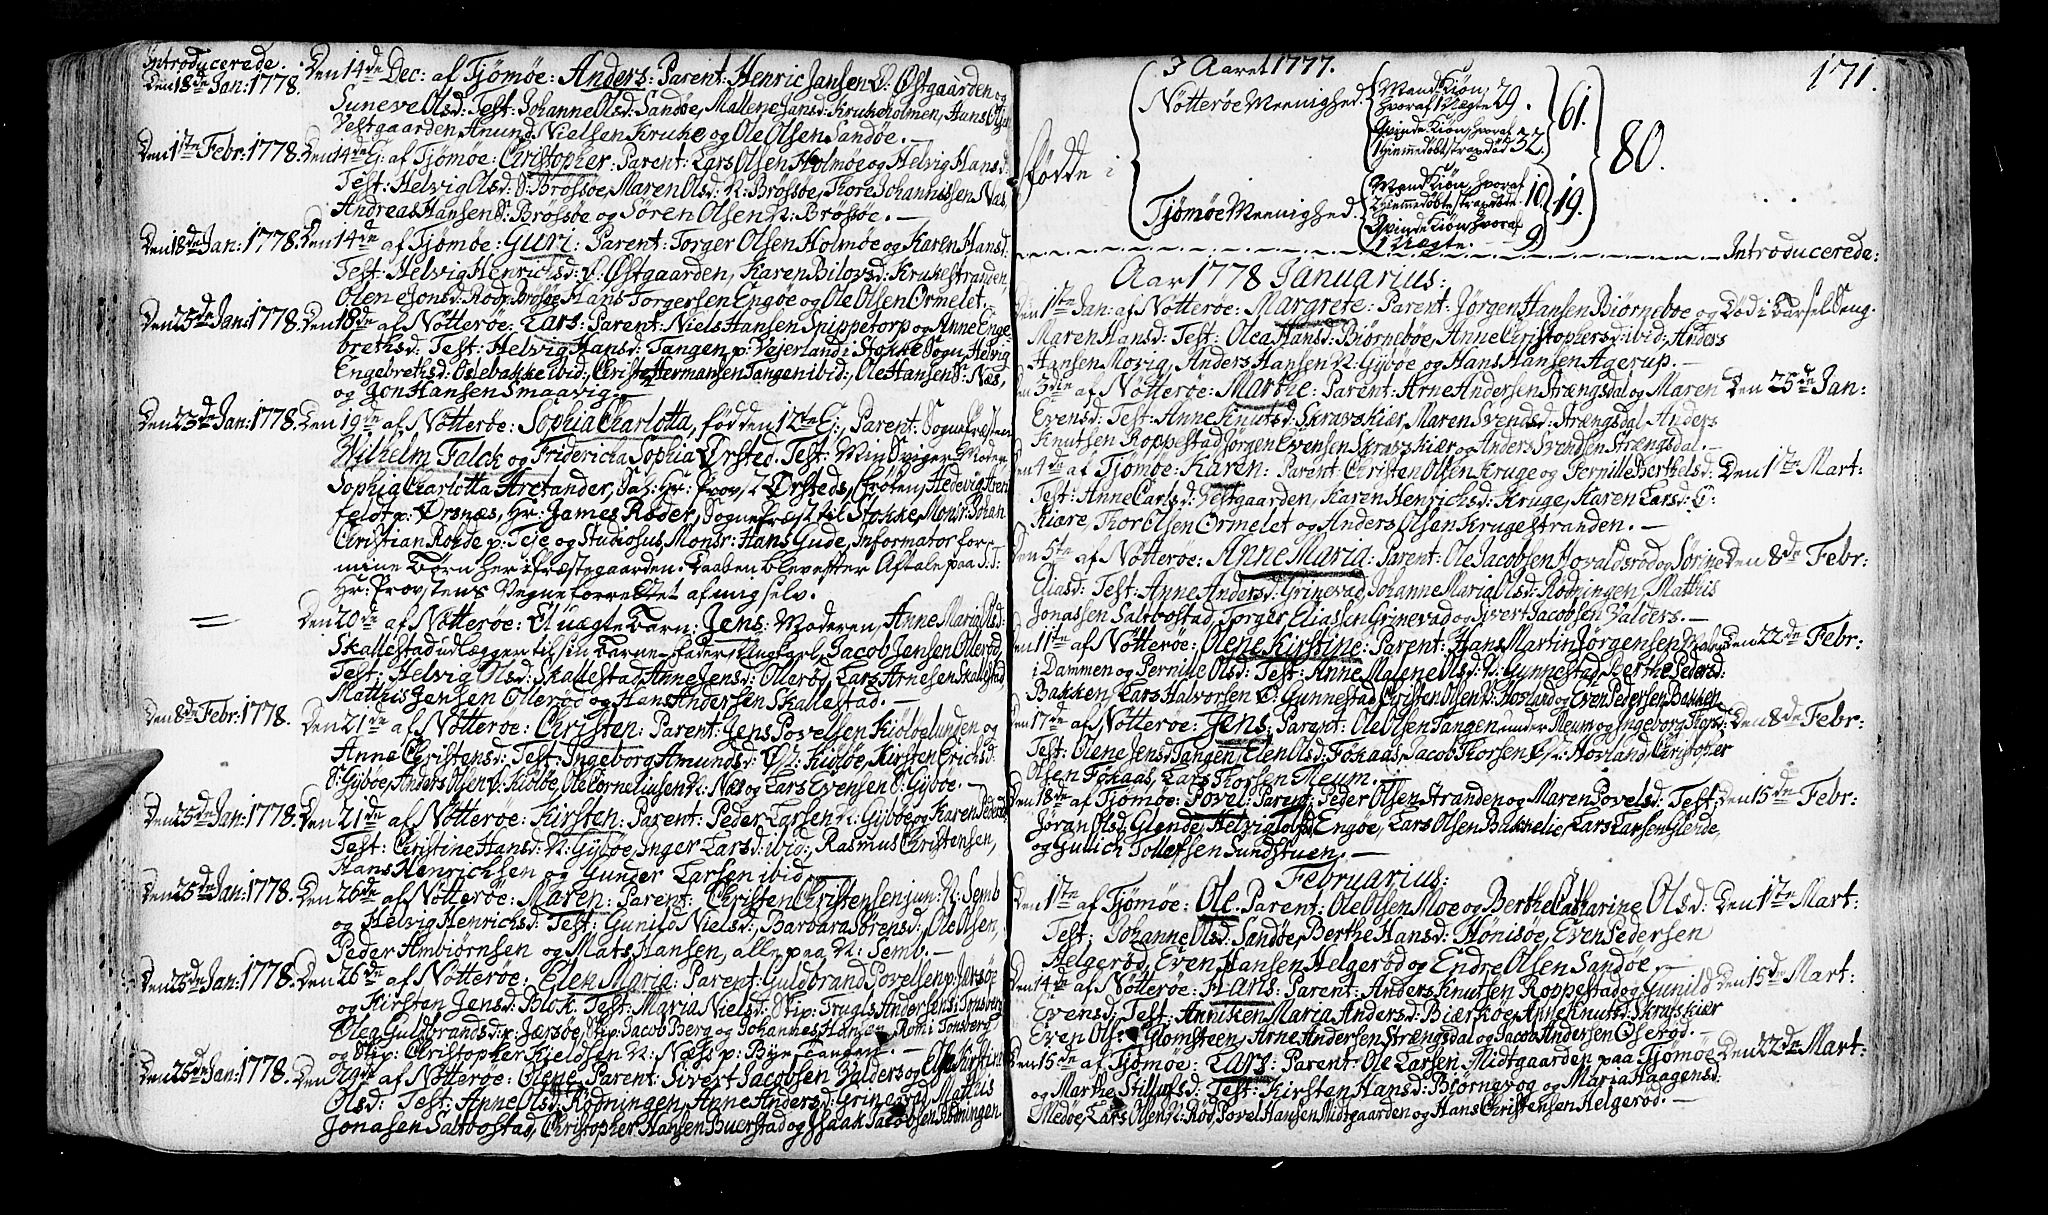 Introducerede.
Den 18de Jan: 1778. Den 14de Dec: af Tjömöe: Anders: Parent: Henric Jansen Ö: Östgaarden og
Suneve Olsd: Test: Johanne Olsd: Sandöe, Mallene Jansd: Krukeholmen, Hans
Vestgaarden, Anund Nielsen Kruke og Ole Olsen Sandöe. —
Den 1ste Febr: 1778. Den 14de Ej: af Tjömöe: Christopher: Parent: Lars Olsen Holmöe og Helvig Hansd:
Test: Helvig Olsd: S: Brössöe, Maren Olsd: N: Brössöe, Thore Johannissen Næs,
Andreas Hansen S: Brössöe og Sören Olsen N: Brössöe. —
Den 18de Jan: 1778. Den 14de af Tjömöe: Guri: Parent: Torger Olsen Holmöe og Karen Hansd:
Test: Helvig Henrichsd: Ö: Östgaarden, Karen Bilovsd: Krukestranden,
Olene Jonsd: Röd, Brösöe, Hans Torgersen Engöe og Ole Olsen Ormelet. —
Den 25de Jan: 1778. Den 18de af Nötteröe: Lars: Parent: Niels Hansen Snippetorp og Anne Enge-
brethsd: Test: Helvig Hansd: Tangen p: Vejerland i Stokke Sogn, Helvig
Engebrethsd: Oslebakke ibid:, Christ: Hermansen Tangen ibid:, Ole Hansen S: Næs,
og Jon Hansen Smaavig. —
Den 23de Jan: 1778. Den 19de af Nötteröe: Sophia Charlotta, föd den 12te Ej:, Parent: Sogne Præsten
Wilhelm Falck og Fridericha Sophia Örsted. Test: Min Sviger Moder
Sophia Charlotta Aretander, Sal: Hr: Provst Örsteds, Fröken Hedevig Aren
feldt p: Örsnæs, Hr: James Röder, Sogne Præst til Stokke, Monsr: Johan
Christian Rohde p: Teie og Studiosus Monsr: Hans Gude, Informator for
mine Börn her i Præstegaarden. Daaben blev efter Aftale paa S: T:
Hr: Provstens Vegne forrettet af mig selv.
= Den 20de af Nötteröe: Et uægte Barn: Jens: Moderen, Anne Maria Olsd:
Skallestad udlægger til sin Barne-fader Ungkarl, Jacob Jensen Olleröd,
Test: Helvig Olsd: Skallestad, Anne Jensd: Olleröd, Lars Arnesen Skallestad,
Matthis Jensen Olleröd og Hans Andersen Skallestad. —
Den 8de Febr: 1778. Den 21de af Nötteröe: Christen: Parent: Jens Povelsen Kiölbelunden og
Anne Christensd: Test: Ingeborg Amundsd: Kiölöe, Kirsten Erichsd:
S: Gyböe, Anders Olsen Ö: Kiölöe, Ole Corneliusen N: Næs og Lars Evensen S: Gyböe. —
Den 25de Jan: 1778. Den 21de af Nötteröe: Kirsten: Parent: Peder Larsen N: Gyböe og Karen Pedersd:
Test: Christine Hansd: N: Gyböe, Inger Larsd: ibid:, Rasmus Christensen,
Hans Henrichsen og Gunder Larsen ibid. —
Den 25de Jan: 1778. Den 26de af Nötteröe: Maren: Parent: Christen Christensen jun: N: Semb
og Helvig Henrichsd: Test: Gunild Nielsd:, Barbara Sörensd:, Ole Olsen,
Peder Ambiörnsen og Mats Hansen, alle paa N: Semb. —
Den 25de Jan: 1778. Den 26de af Nötteröe: Elen Maria: Parent: Guldbrand Povelsen p: Jersöe
og Kirsten Jensd: Blok. Test: Maria Nielsd: Stip: Trugls Andersens i Tonsberg,
Oleg Guldbrandsd: p: Jærsöe, Stip: Jacob Berg og Johannes Hansen Rom i Tonsberg
og Stip: Christopher Kieldsen N: Næs p: Bye Tangen. —
Den 25de Jan: 1778. Den 29de af Nötteröe: Olene: Parent: Sivert Jacobsen Balders og Olea Kirstine
Olsd: Test: Anne Olsd: Rödningen, Anne Andersd: Grinevad, Mathis
Jonasen Saltbostad, Christopher Hansen Buerstad og Isaak Jacobsen Rödningen
171.
I Aaret 1777.
Födde i
Nötteröe Meenighed. Mand Kiön, hvoraf 1 Uægte 29.
Qvinde Kiön, hvoraf 1 hiemmedöbt strax död 32. 61.
Tjömöe Meenighed. Mand Kiön, hvoraf 2 hiemmedöbte strax döde 10.
Qvinde Kiön, hvoraf 1 Uægte. 9. 19.
80.
Introducerede:
Aar 1778 Januarius:
Den 1ste Jan: af Nötteröe: Margrete: Parent: Jörgen Hansen Biörneboe og Död i Barsel Seng.
Maren Hansd: Test: Olea Hansd: Biörneböe, Anne Christophersd: ibid:, Anders
Hansen Movig, Anders Hansen N: Gyböe og Hans Hansen Agerup. —
Den 3die af Nötteröe: Marthe: Parent: Arne Andersen Strængsdal og Maren Den 25de Jan:
Evensd: Test: Anne Knutsd: Skravskier, Maren Svendsd: Strængsdal, Anders
Knutsen Roppestad, Jörgen Evensen Skravskiær og Anders Svendsen Strængsdal. —
Den 4de af Tjömöe: Karen: Parent: Christen Olsen Kruge og Pernille Berthelsd: Den 1ste Mart:
Test: Anne Carlsd: Östgaarden, Karen Henrichsd: Kruge, Karen Larsd: Ö:
Kiære, Thor Olsen Ormelet og Anders Olsen Krugestranden. —
Den 5te af Nötteröe: Anne Maria: Parent: Ole Jacobsen Hovaldsröd og Sörine Den 8de Febr:
Eliasd: Test: Anne Andersd: Grinevad, Johanne Maria Olsd: Rödningen, Matthis
Jonassen Saltbostad, Torger Eliassen Grinevad og Sivert Jacobsen Balders. —
Den 11te af Nötteröe: Olene Kirstine: Parent: Hans Martin Jörgensen Den 22de Febr:
i Dammen og Pernille Olsd: Test: Anne Malene Olsd: N: Gunnestad, Berthe Pedersd:
Bakken, Lars Halvorsen Ö: Gunnestad, Christen Olsen N: Hovland og Even Pedersen Bakken
Den 17de af Nötteröe: Jens: Parent: Ole Olsen Tangen under Meum og Ingeborg Thorsd: Den 8de Febr:
Test: Olene Jensd: Tangen, Elen Olsd: Fökaas, Jacob Thorsen Hovland, Christopher
Olsen Fökaas, Lars Thorsen Meum. —
Den 18de af Tjömöe: Povel: Parent: Peder Olsen Stranden og Maren Povelsd: Test: Den 15de Febr:
Jöran Olsd: Glende, Helvig Tolfsd: Engöe, Lars Olsen Bakkelie, Lars Larsen Glende,
og Gullich Tollefsen Sundstuen. —
Februarius:
Den 1ste af Tjömöe: Ole: Parent: Ole Olsen Moe og Berthe Catharine Olsd: Den 1ste Mart:
Test: Johanne Olsd: Sandöe, Berthe Hansd: Hönisöe, Even Pedersen
Helgeröd, Even Hansen Helgeröd og Endre Olsen Sandöe. —
Den 14de af Nötteröe: Hans: Parent: Anders Knutsen Roppestad og Gunild Den 15de Mart:
Evensd: Test: Anniken Maria Andersd: Biærkøe, Anne Knutsd: Skrafskiær
Even Ols: Glomsteen, Arne Andersen Strængsdal og Jacob Andersen Oseröd. —
Den 15de af Tjömöe: Lars: Parent: Ole Larsen Midtgaarden paa Tjömöe Den 22de Mart:
og Marthe Stillufsd: Test: Kirsten Hansd: Biörnevog og Maria Haagensd:
Medöe, Lars Olsen N: Röd, Povel Hansen Midtgaarden og Hans Christensen Helgeröd. —